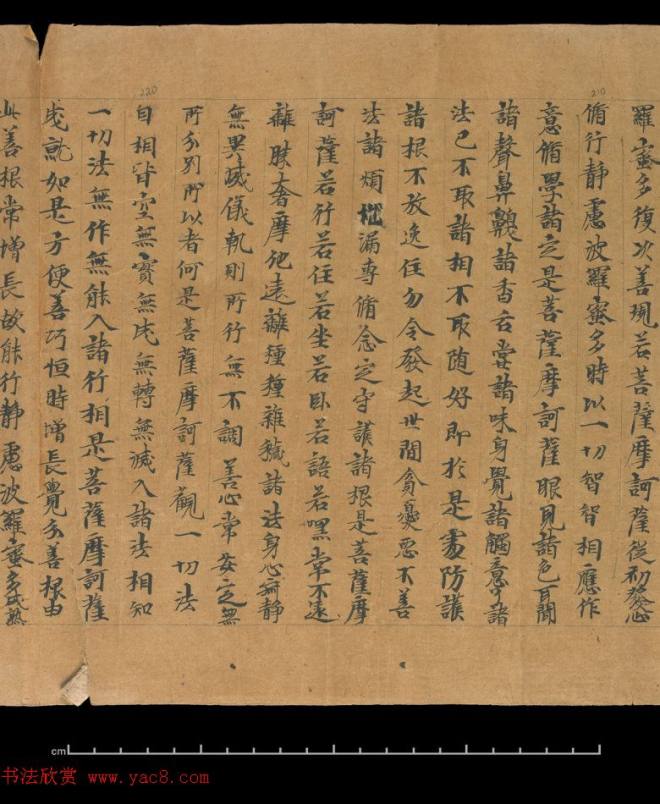 羅蜜多復次善現若菩薩摩訶薩從初發心
脩行靜慮波羅蜜多時以一切智智相應作
意脩學諸定是菩薩摩訶薩眼見諸色耳聞
諸聲鼻齅諸香舌甞諸味身覺諸觸意了諸
法已不取諸相不取随好即於是處防護
諸根不放逸住勿令發起世間貪憂惡不善
法諸煩惱漏專脩念定守護諸根是菩薩摩
訶薩若行若住若坐若臥若語若嘿常不遠
離勝奢摩他遠離種種雜穢諸法身心寂静
無異威儀軌則所行無不調善心常安定無
所分別所以者何是菩薩摩訶薩觀一切法
自相皆空無實無成無轉無滅入諸法相知
一切法無作無能入諸行相是菩薩摩訶薩
成就如是方便善巧恒時增長覺分善根由
此善根常增長故能行靜慮波羅蜜多成熟
210
220
cm
书法欣赏 www.yac8.com